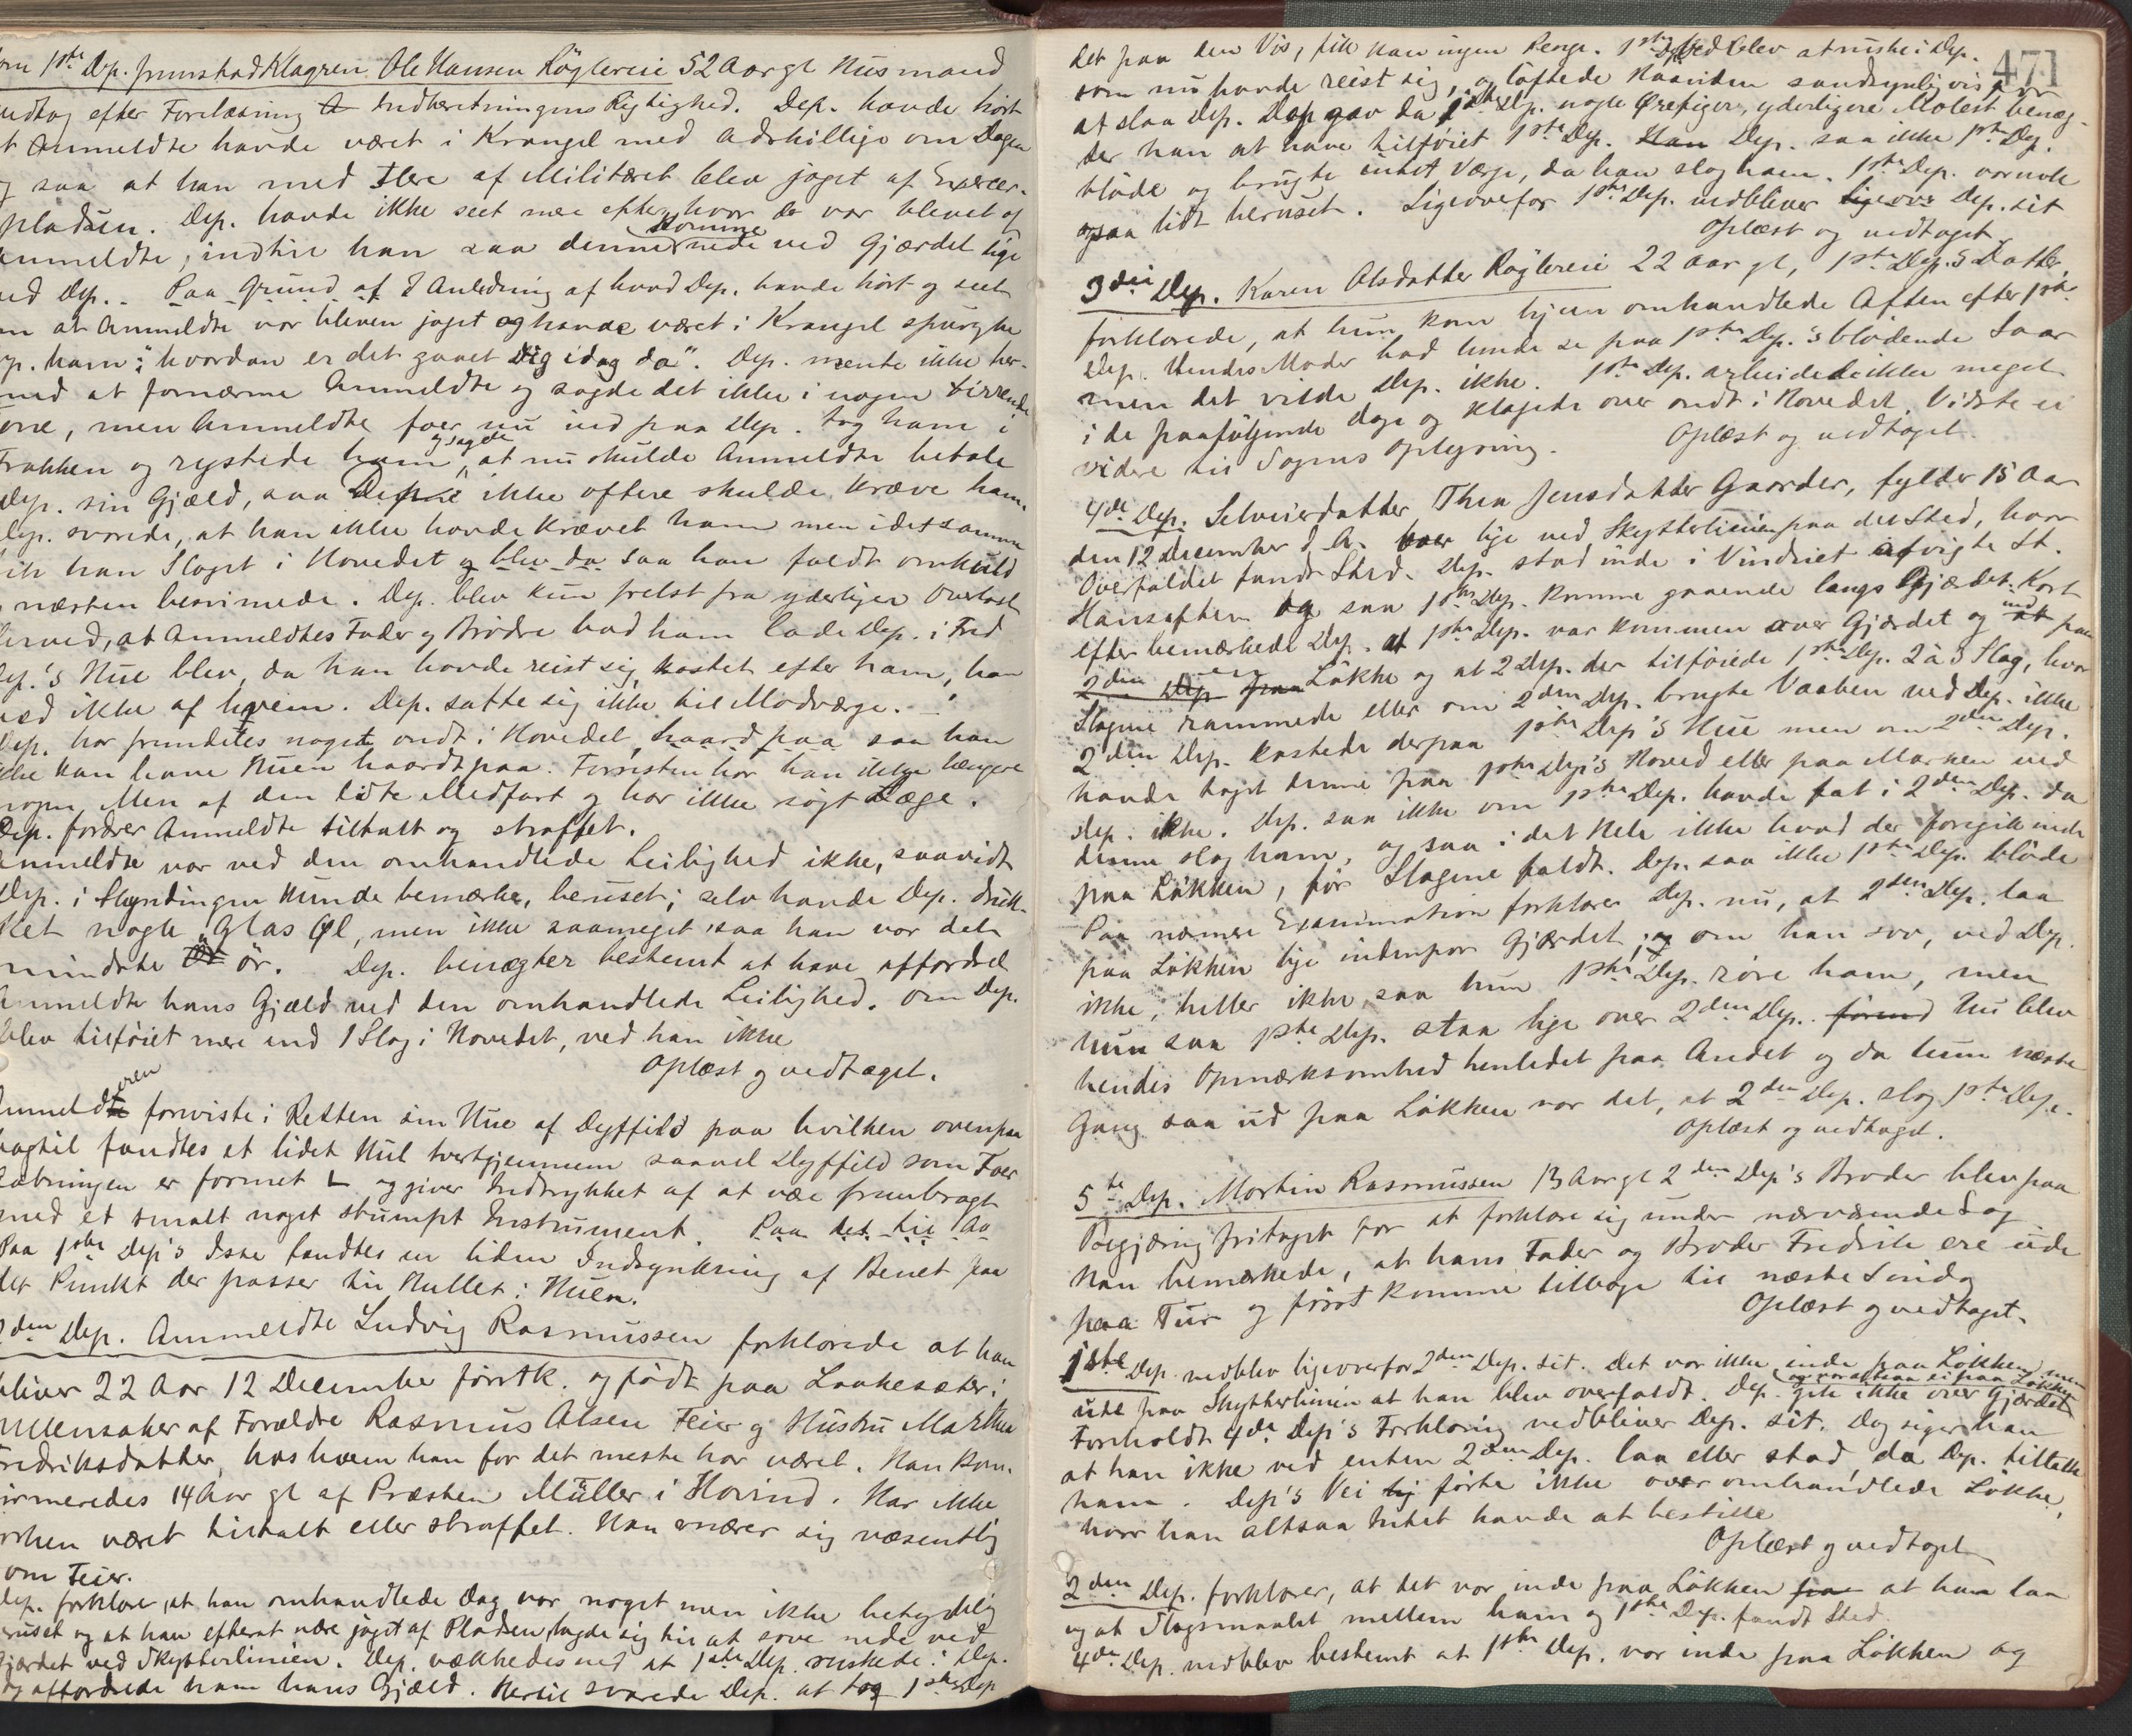 om 1ste Dep. fremstod Klageren Ole Hansen Røglereie 52 Aar gl Husmand
vedtog efter Forelæsning Indberetningens Rigtighed. Dep. havde hørt
at Anmeldte havde været i Krangel med adskillige om Dagen
og saa at han med Flere af Militæret blev jaget af Exercer-
pladsen. Dep. havde ikke seet mere efter hvor da var blevet af
Anmeldte, indtil han saa denne komme nede ved Gjærdet lige
ved Dep. Paa Grund af I Anledning af hvad Dep. havde hørt og seet
om at Anmeldte var bleven jaget og havde været i Krangel spurgte
Dep. ham: "hvordan er det gaaet Dig idag da". Dep. mente ikke her-
med at fornærme Anmeldte og sagde det ikke i nogen tirrende
Tone, men Anmeldte foer nu ind paa Dep. tog ham i
Frakken og rystede ham og sagde, at nu skulde Anmeldte betale
Dep. sin Gjæld, saa Dep. ikke oftere skulde kræve ham.
Dep. svarede, at han ikke havde krævet ham men i det samme
fik han Slaget i Hovedet og blev da saa han faldt omkuld
og næsten besvimede. Dep. blev kun frelst fra yderligere Overlast
derved, at Anmeldtes Fader og Brødre bad ham lade Dep. i Fred
Dep.'s Hue blev, da han havde reist sig, kastet efter ham, han
ved ikke af hvem. Dep. satte sig ikke til Modværge.
Dep. har fremdeles noget ondt i Hovedet, haard paa saa han
ikke kan have Huen haardt paa. Forresten har han ikke længere
nogen Men af den lidte Medfart og har ikke søgt Læge.
Dep. fordrer Anmeldte tiltalt og straffet.
Anmeldte var ved den omhandlede Leilighed ikke, saavidt
Dep. i Skyndingen kunde bemærke, beruset; selv havde Dep. druk-
ket nogle Glas Øl, men ikke saameget, saa han var det
mindste ør. Dep. benægter bestemt at have affordret
Anmeldte hans Gjæld ved den omhandlede Leilighed. Om Dep.
blev tilføiet mere end 1 Slag i Hovedet, ved han ikke
Oplæst og vedtaget.
Anmelderen foreviste i Retten sin Hue af Dyffild paa hvilken ovenpaa
bagtil fandtes et lidet Hul tvertgjennem saavel Dyffild som Foer
Aabningen er formet L og giver Indtrykket af at være frembragt
med et smalt noget stumpt Instrument. Paa det til
Paa 1ste Dep's Isse fandtes en liden Indsynkning af Benet paa
det Punkt der passer til Hullet i Huen.
2den Dep. Anmeldte Ludvig Rasmussen forklarede at han
bliver 22 Aar 12 December førstk. og født paa Laakesæter i
Ullensaker af Forældre Rasmus Olsen Feier og Hustru Marthea
Fredriksdatter, hos hvem han for det meste har været. Han kon-
firmeredes 14 Aar gl af Præsten Müller i Hovind. Har ikke
forhen været tiltalt eller straffet. Han ernærer sig væsentlig
som Feier.
Dep. forklarer, at han omhandlede Dag var noget men ikke betydelig
beruset og at han efterat være jaget af Pladsen, lagde sig til at sove nede ved
Gjærdet ved Skytterlinien. Dep. vækkedes ved at 1ste Dep. ruskede i Dep.
og affordrede ham hans Gjæld. Hertil svarede Dep. at tog 1ste Dep
471
det paa den Vis, fik han ingen Penge. 1ste Dep. vedblev at ruske i Dep.
som nu havde reist sig, og løftede Haanden sandsynligvis for
at slaa Dep. Dep gav da 1ste Dep. nogle Ørefiger, yderligere Molest benæg-
der han at have tilføiet 1ste Dep. Han Dep. saa ikke 1ste Dep.
bløde og brugte intet Værge, da han slog ham. 1ste Dep. var nok
ogsaa lidt beruset. Ligeoverfor 1ste Dep. vedbliver Dep. sit
Oplæst og vedtaget.
3die Dep. Karen Olsdatter Røglereie 22 Aar gl, 1ste Dep.s Datter,
forklarede, at hun kom hjem omhandlede Aften efter 1ste
Dep. Hendes Moder bad hende se paa 1ste Dep.'s blødende Saar
men det vilde Dep. ikke. 1ste Dep. arbeidede ikke meget
i de paafølgende Dage og klagede over ondt i Hovedet. Vidste ei
videre til Sagens Oplysning.
Oplæst og vedtaget.
4de Dep. Selveierdatter Thea Jensdatter Gaarder, fylder 15 Aar
den 12 December d. A. boer lige ved Skytterlinien paa det Sted, hvor
Overfaldet fandt Sted. Dep. stod inde i Vinduet afvigte St.
Hansaften og saa 1ste Dep. komme gaaende langs Gjærdet. Kort
efter bemærkede Dep. at 1ste Dep. var kommen over Gjærdet og ind paa
2den Dep fra en Løkke og at 2 Dep. der tilføiede 1ste Dep. 2 à 3 Slag, hvor
Slagene rammede eller om 2den Dep. brugte Vaaben ved Dep. ikke
2den Dep. kastede derpaa 1ste Dep's Hue men om 2den Dep.
havde taget denne paa 1ste Dep's Hoved eller paa Marken ved
Dep. ikke. Dep. saa ikke om 1ste Dep. havde fat i 2den Dep. da
denne slog ham, og saa i det Hele ikke hvad der foregik inde
paa Løkken, før Slagene faldt. Dep. saa ikke 1ste Dep. bløde
Paa nærmere Examination forklarer Dep. nu, at 2den Dep. laa
paa Løkken lige indenfor Gjærdet; og om han sov, ved Dep.
ikke, heller ikke saa hun 1ste Dep. røre ham, men
hun saa 1ste Dep. staa lige over 2den Dep. førend Nu blev
hendes Opmærksomhed henledet paa Andet og da hun næste
Gang saa ud paa Løkken var det, at 2den Dep. slog 1ste Dep.
Oplæst og vedtaget.
5te Dep. Martin Rasmussen 13 Aar gl 2den Dep's Broder blev paa
Begjæring fritaget for at forklare sig under nærværende Sag
Han bemærkede, at hans Fader og Broder Fredrik ere ude
paa Tur og først komme tilbage til næste Søndag
Oplæst og vedtaget.
1ste Dep. vedblev ligeoverfor 2den Dep. sit. Det var ikke inde paa Løkken, men
ude paa Skytterlinien at han blev overfaldt. Dep. gik ikke over Gjærdet og var altsaa ei paa Løkken
Foreholdt 4de Dep's Forklaring vedbliver Dep. sit. Dog siger han
at han ikke ved enten 2den Dep. laa eller stod, da Dep. tiltalte
ham. Dep's Vei førte ikke over omhandlede Løkke,
hvor han altsaa Intet havde at bestille
Oplæst og vedtaget
2den Dep. forklarer, at det var inde paa Løkken at han laa
og at Slagsmaalet mellem ham og 1ste Dep. fandt Sted.
4de Dep. vedblev bestemt at 1ste Dep. var inde paa Løkken og